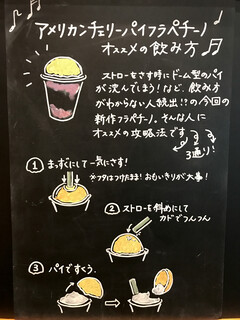 アメリカンチェリーパイフラペチーノ
オススメの飲み方
ストローをさす時にドーム型のパイ
が沈んでしまう!など、飲み方
がわからない人続出!?の今回の
新作フラペチーノ。そんな人に
オススメの攻略法です
3通り!
① まっすぐにして一気にさす!
※フタはつけたまま!おもいきりが大事!
② ストローを斜めにして
カドでつんつん
③ パイですくう。